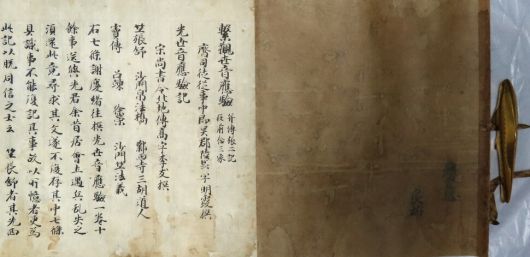 繫觀世音應驗記 并傅張二記
齊司徒從事中郎吳郡陸杲字明霞撰
光世音應驗記
宋尚書令北地傅亮字季友撰
竺長舒 沙門帛法橋 鄴西寺三胡道人
竇傅 呂竦 徐榮 沙門竺法義
右七條謝慶緒往撰光世音應驗一卷十
餘事送與先君余昔居會土遇兵亂失之
頃還此竟尋求其文遂不復存其中七條
具識事不能復記其事故以所憶者更為
此記以悅同信之士云 竺長舒者其先西